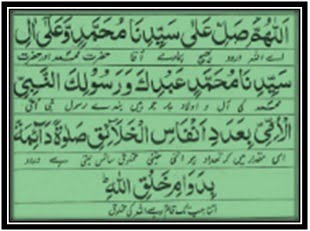 اَللّٰهُمَّ صَلِّ عَلٰی سَیِّدِنَا مُحَمَّدٍ وَّعَلٰی اٰلِ
اے اللہ درود بھیج ہمارے آقا حضرت محمد اور حضرت
سَیِّدِنَا مُحَمَّدٍ عَبْدِكَ وَرَسُوْلِكَ النَّبِیِّ
محمد کی آل و اولاد پر جو ہیں بندے رسول نبی امی
الْاُمِّیِّ بِعَدَدِ اَنْفَاسِ الْخَلَائِقِ صَلٰوةً دَآئِمَةً
اس مقدار میں کہ تعداد ہو اتنی جتنی مخلوق سانس لیتی ہے درود
بِدَوَامِ خَلْقِ اللّٰهِ
اتنا جب تک قائم رہے اللہ کی مخلوق